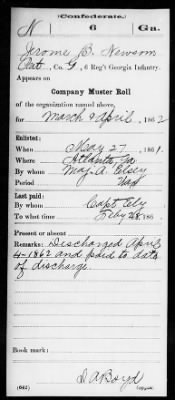 (Confederate.)
N 6 Ga.
Jerome B. Newsom
Pvt, Co. G, 6 Reg't Georgia Infantry.
Appears on
Company Muster Roll
of the organization named above,
for March & April, 1862
Enlisted:
When May 27, 1861.
Where Atlanta, Ga
By whom Maj. A.
Period War
Last paid:
By whom Capt
To what time Feby 28, 186
Present or absent
Remarks: Discharged April
4-1862 and paid to date
of discharge.
Book mark:
(642) Boyd
Copyist.